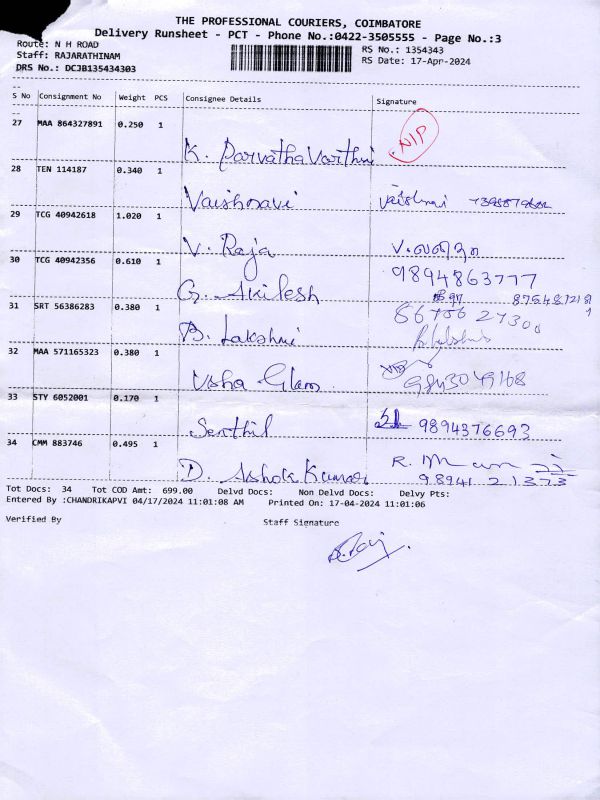 THE PROFESSIONAL COURIERS, COIMBATORE
Delivery Runsheet - PCT - Phone No.:0422-3505555 - Page No.:3
Route: N H ROAD
RS No.: 1354343
Staff: RAJARATHINAM
RS Date: 17-Apr-2024
DRS No.: DCJB135434303
S No Consignment No Weight PCS Consignee Details Signature
27 MAA 864327891 0.250 1
NIP
K. Parvatha Varthni
28 TEN 114187 0.340 1
Vaishnavi Vaishnavi
29 TCG 40942618 1.020 1
V. Raja
30 TCG 40942356 0.610 1
9894863777
G. Akilesh
31 SRT 56386283 0.380 1
B. Lakshmi
32 MAA 571165323 0.380 1
Usha Glam 9843049168
33 STY 6052001 0.170 1
Senthil 9894376693
34 CMM 883746 0.495 1
D. Ashok Kumar
98941 21373
Tot Docs: 34 Tot COD Amt: 699.00 Delvd Docs: Non Delvd Docs: Delvy Pts:
Entered By :CHANDRIKAPVI 04/17/2024 11:01:08 AM Printed On: 17-04-2024 11:01:06
Verified By Staff Signature